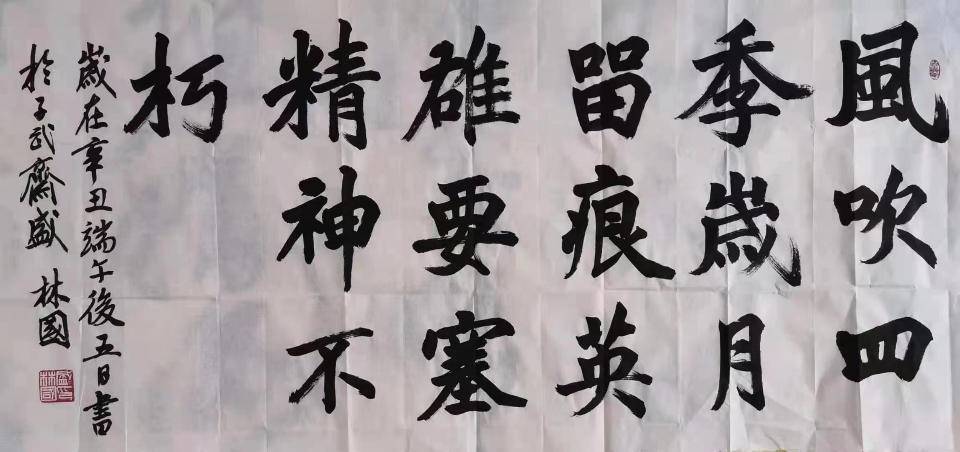 風吹四
季歲月
留痕英
雄要塞
精神不
朽
歲在辛丑端午後五日書
於子武齋盛林國